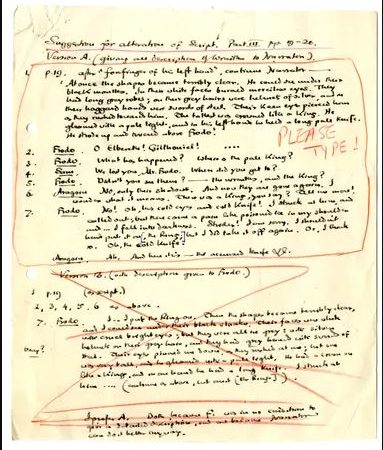 Suggestion for alteration of Script. Part III pp. 19-20.
Version A. (giving all description of to Narrator).
1. p.19. after "forefinger of his left hand", continues Narrator —
'At once the shapes became terribly clear. He could see under their
black mantles. In their white faces burned merciless eyes. They
had long grey robes; on their grey hairs were helms of silver; and in
their haggard hands were swords of steel. Their keen eyes pierced him
as they rushed towards him. The tallest was crowned like a King. He
gleamed with a pale light, and in his left hand he held a long pale knife.
He and over Frodo.
PLEASE TYPE!
2. Frodo. O Elbereth! Gilthoniel! ....
3. Frodo. What has happened? Where is the pale King?
4. Sam. We lost you, Mr. Frodo. Where did you get to?
5. Frodo. Didn't you see them? — the and the King?
6. Aragorn No, only their shadows. And now they are gone again. I
what it means. There was a King, you say? Tell me more!
7. Frodo. No! Oh, his cold eyes and cold knife! I struck at him, and
called out; but there came a pain like poisoned ice in my shoulder
— and I fell into darkness. I'm sorry. I shouldn't
have put it on [the Ring], but I did take it off again. Or, I think
so. Oh, the cold knife!
Aragorn. Ah. And here it is — the accursed knife &c.
Version B. (with descriptions given to Frodo.)
1 p.19 (as script.)
2, 3, 4, 5, 6 as above.
7. Frodo I — I put the Ring on. Then the shapes became terribly clear,
and I could see under their black cloaks. Their faces were white
with cruel bright eyes; but they were all so grey: with silver
helmets on their grey hair, and they had grey hands with swords of
steel. Their eyes me down, they rushed at me; but one
was very tall, and he gleamed with a pale light. He had a crown on
like a king, and in one hand he had a long knife. I struck at
him .... (continue as above, but omit [the Ring].)
I prefer A. Both because F. was in no condition to
give a detailed description, and one because Narrator
can do it better anyway.